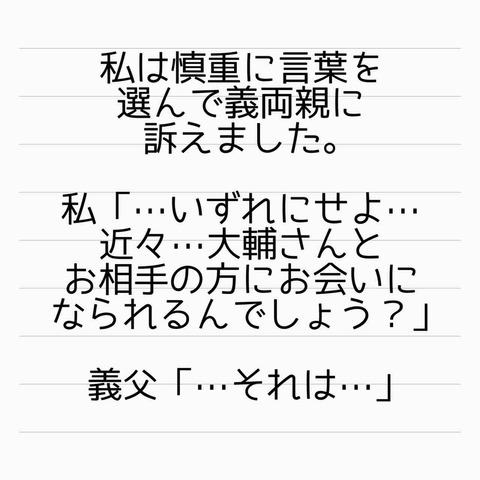 私は慎重に言葉を
選んで義両親に
訴えました。
私「…いずれにせよ…
近々…大輔さんと
お相手の方にお会いに
なられるんでしょう？」
義父「…それは…」